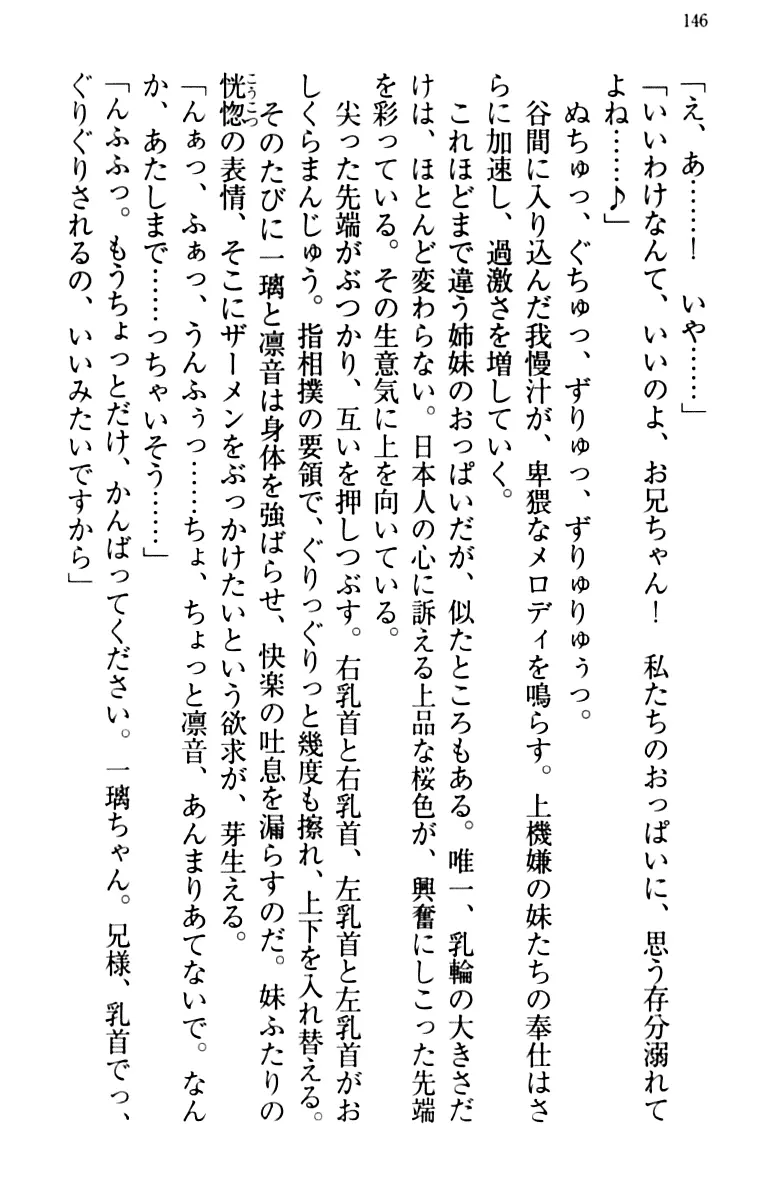 146
「え、あ……！　いや……」
「いいわけなんて、いいのよ、お兄ちゃん！　私たちのおっぱいに、思う存分溺れて
よね……♪」
ぬちゅっ、ぐちゅっ、ずりゅっ、ずりゅりゅぅっ。
谷間に入り込んだ我慢汁が、卑猥なメロディを鳴らす。上機嫌の妹たちの奉仕はさ
らに加速し、過激さを増していく。
これほどまで違う姉妹のおっぱいだが、似たところもある。唯一、乳輪の大きさだ
けは、ほとんど変わらない。日本人の心に訴える上品な桜色が、興奮にしこった先端
を彩っている。その生意気に上を向いている。
尖った先端がぶつかり、互いを押しつぶす。右乳首と右乳首、左乳首と左乳首がお
しくらまんじゅう。指相撲の要領で、ぐりっぐりっと幾度も擦れ、上下を入れ替える。
そのたびに一璃と凛音は身体を強ばらせ、快楽の吐息を漏らすのだ。妹ふたりの
恍惚こうこつの表情、そこにザーメンをぶっかけたいという欲求が、芽生える。
「んぁっ、ふぁっ、うんふぅっ……ちょ、ちょっと凛音、あんまりあてないで。なん
か、あたしまで……っちゃいそう……」
「んふふっ。もうちょっとだけ、かんばってください。一璃ちゃん。兄様、乳首でっ、
ぐりぐりされるの、いいみたいですから」